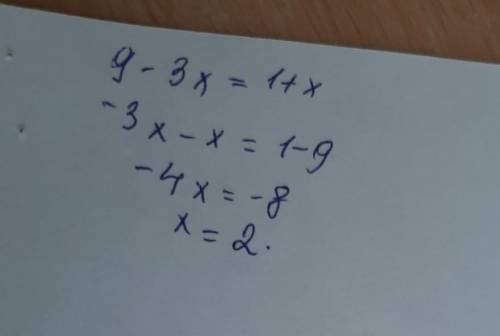 9 - 3x = 1+x
-3x - x = 1-9
-4x = -8
x = 2.